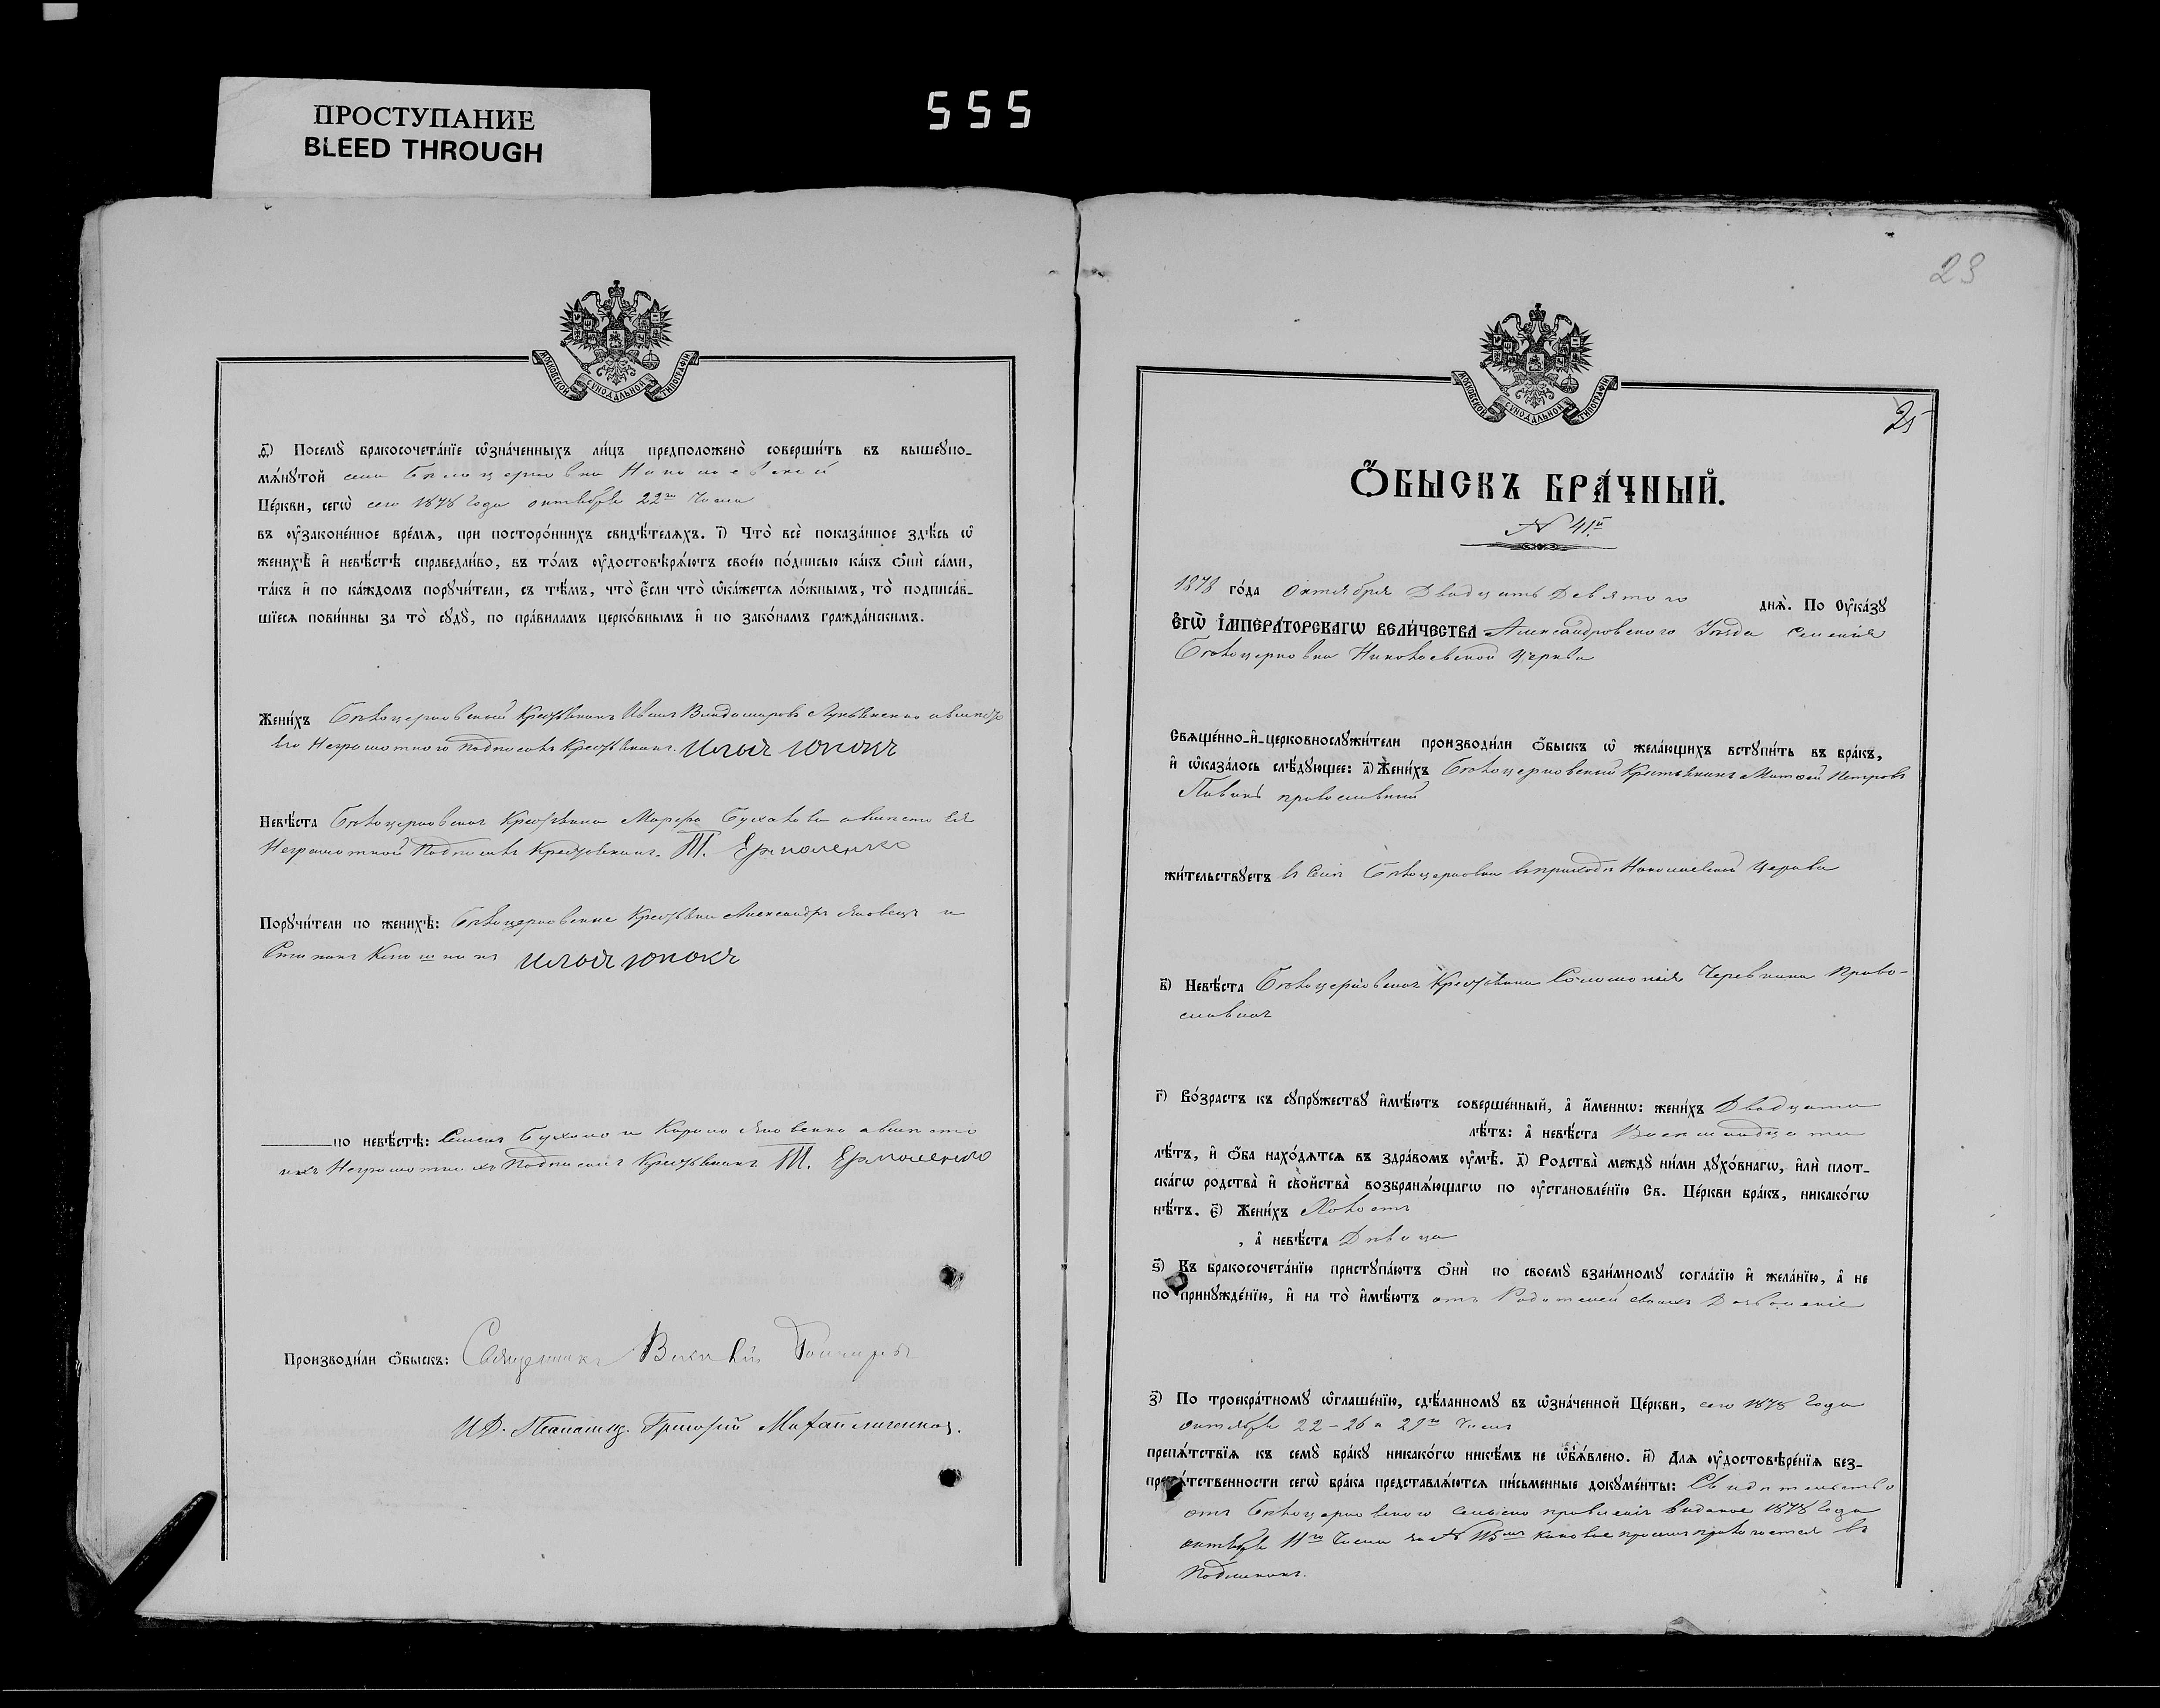 ПРОСТУПАНИЕ
BLEED THROUGH
555
МОСКОВСКОЙ СѴНОДАЛЬНОЙ ТИПОГРАФІИ
Посемꙋ̀ бракосочета́нїе ѡ҆зна́ченныхъ ли́цъ предположено̀ соверши́ть въ вышеупо-
мѧ́нꙋтой села Белоцерковки Николаевской
Це́ркви, сегѡ̀ сего 1878 года октября 22го числа
въ ᲂу҆законе́нное вре́мѧ, при посторо́ннихъ свидѣ́телѧхъ. і҃) Что̀ всѐ показа́нное здѣ́сь ѡ҆
женихѣ̀ и҆ невѣ́стѣ справедли́во, въ то́мъ ᲂу҆достовѣрѧ́ютъ свое́ю по́дписью ка́къ ѻ҆нѝ са́ми,
та́къ и҆ по ка́ждомъ порꙋчи́тели, съ тѣ́мъ, что̀ є҆́сли что̀ ѡ҆ка́жетсѧ ло́жнымъ, то̀ подписа́в-
шїесѧ пови́нны за то̀ сꙋдꙋ̀, по пра́виламъ церко́внымъ и҆ по зако́намъ гражда́нскимъ.
Жени́хъ Белоцерковский Крестьянинъ Иванъ Владимировъ Лукьяненко а вместо
его Неграмотного подписалъ Крестьянинъ. Илья Юпокъ
Невѣ́ста Белоцерковская Крестьянка Марфа Бухалова а вместо Ея
Неграмотной Подписалъ Крестьянинъ. Т. Ермоленко
Порꙋчи́тели по женихѣ̀: Белоцерковские Крестьяне Александръ Яковецъ и
Степанъ Илья Юпокъ
по невѣ́стѣ: Семенъ Бухало и Карпо Яковенко а вместо
ихъ Неграмотныхъ Подписалъ Крестьянинъ Т. Ермоленко
Производи́ли ѻ҆́быскъ: Священникъ Василий Гончаровъ
И.Д. Псаломщ. Григорий Михайличенко.
23
МОСКОВСКОЙ СѴНОДАЛЬНОЙ ТИПОГРАФІИ
25
Ѻ҆́БЫСКЪ БРА́ЧНЫЙ.
№ 41й
1878 го́да Октября Двадцать Девятого днѧ̀. По ᲂу҆ка́зꙋ
Є҆гѡ̀ І҆мпера́торскагѡ вели́чества Александровского Уезда Селения
Белоцерковки Николаевской Церкви
Свѧще́нно-и҆-церковнослꙋжи́тели производи́ли ѻ҆́быскъ ѡ҆ жела́ющихъ встꙋпи́ть въ бра́къ,
и҆ ѡ҆каза́лось слѣ́дꙋющее: а҃) Жени́хъ Белоцерковский Крестьянинъ Матвей Петровъ
православный
жи́тельствꙋетъ в селе Белоцерковки в приходе Николаевской Церкви
в҃) Невѣ́ста Белоцерковская Крестьянка Соломония Черевкина Право-
славная
г҃) Во́зрастъ къ сꙋпрꙋ́жествꙋ и҆мѣ́ютъ соверше́нный, а҆ и҆́меннѡ: жени́хъ Двадцати
лѣ́тъ: а҆ невѣ́ста Восемнадцати
лѣ́тъ, и҆ ѻ҆́ба нахо́дѧтсѧ въ здра́вомъ ᲂу҆мѣ̀. д҃) Родства̀ междꙋ ни́ми дꙋхо́внагѡ, и҆лѝ плот-
ска́гѡ родства̀ и҆ сво́йства̀ возбранѧ́ющагѡ по ᲂу҆становле́нїю Св. Це́ркви бра́къ, никако́гѡ
нѣ́тъ. є҃) Жени́хъ Холостъ
, а҆ невѣ́ста Девица
ѕ҃) Къ бракосочета́нїю пристꙋпа́ютъ ѻ҆нѝ по своемꙋ̀ взаи́мномꙋ согла́сїю и҆ жела́нїю, а҆ не
по принꙋжде́нїю, и҆ на то̀ и҆мѣ́ютъ отъ Родителей своихъ Дозволение
з҃) По троекра́тномꙋ ѡ҆глаше́нїю, сдѣ́ланномꙋ въ ѡ҆зна́ченной Це́ркви, сего 1878 года
октября 22 – 26 и 29го числа
препѧ́тствїѧ къ семꙋ̀ бра́кꙋ никако́гѡ никѣ́мъ не ѡ҆б̾ѧ́влено. и҃) Длѧ ᲂу҆достовѣре́нїѧ без-
препѧ́тственности сегѡ̀ бра́ка представлѧ́ютсѧ пи́сьменные докꙋме́нты: Свидетельство
отъ Белоцерковского сельского правления виданое 1878 года
октября 11го числа за № 115мъ каковое при семъ прилагается въ
Подлиннике.